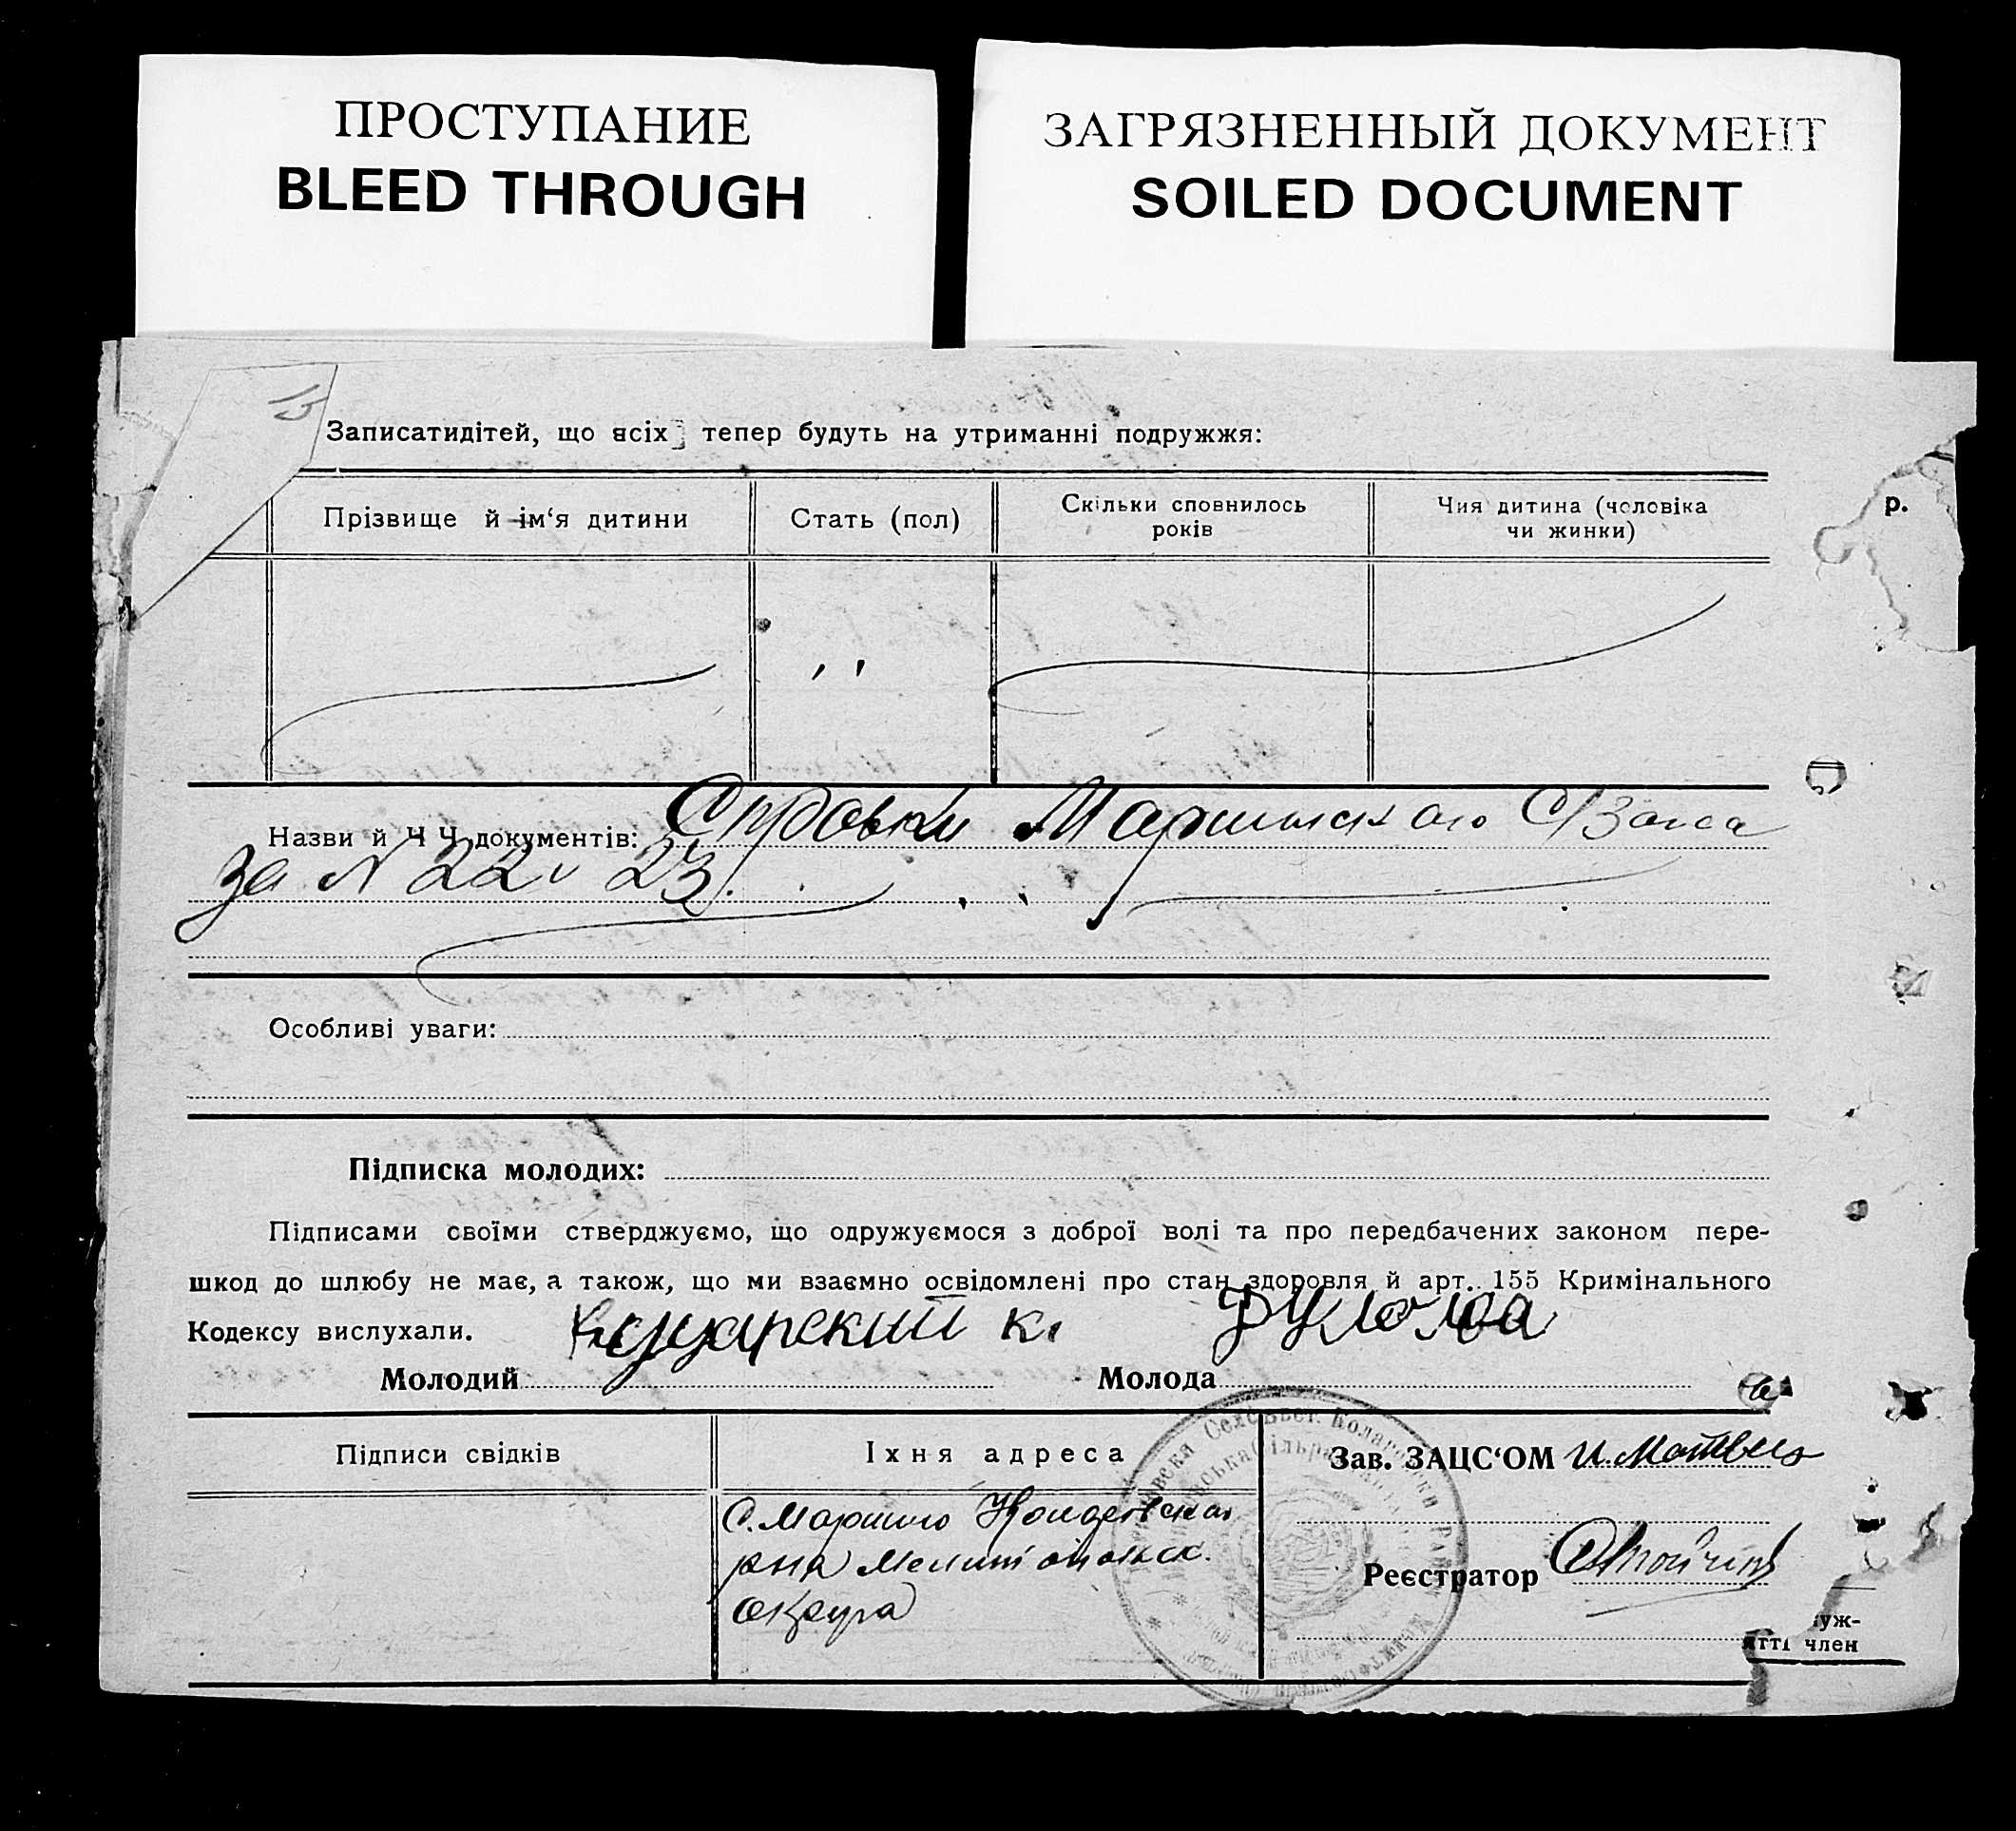 ПРОСТУПАНИЕ
BLEED THROUGH
ЗАГРЯЗНЕННЫЙ ДОКУМЕНТ
SOILED DOCUMENT
15
Записатидітей, що всіх тепер будуть на утриманні подружжя:
Прізвище й ім‘я дитини
Стать (пол)
Скільки сповнилось
років
Чия дитина (чоловіка
чи жинки)
р.
Назви й Ч Ч документів: Справки
за N 22 и 23.
Особливі уваги:
Підписка молодих:
Підписами своїми стверджуємо, що одружуємося з доброї волі та про передбачених законом пере-
шкод до шлюбу не має, а також, що ми взаємно освідомлені про стан здоровля й арт. 155 Кримінального
Кодексу вислухали.
Молодий
Молода
Підписи свідків
Іхня адреса
Зав. ЗАЦС‘ОМ
с.
рна Мелитопольск.
округа
Реєстратор
уж-
тті член